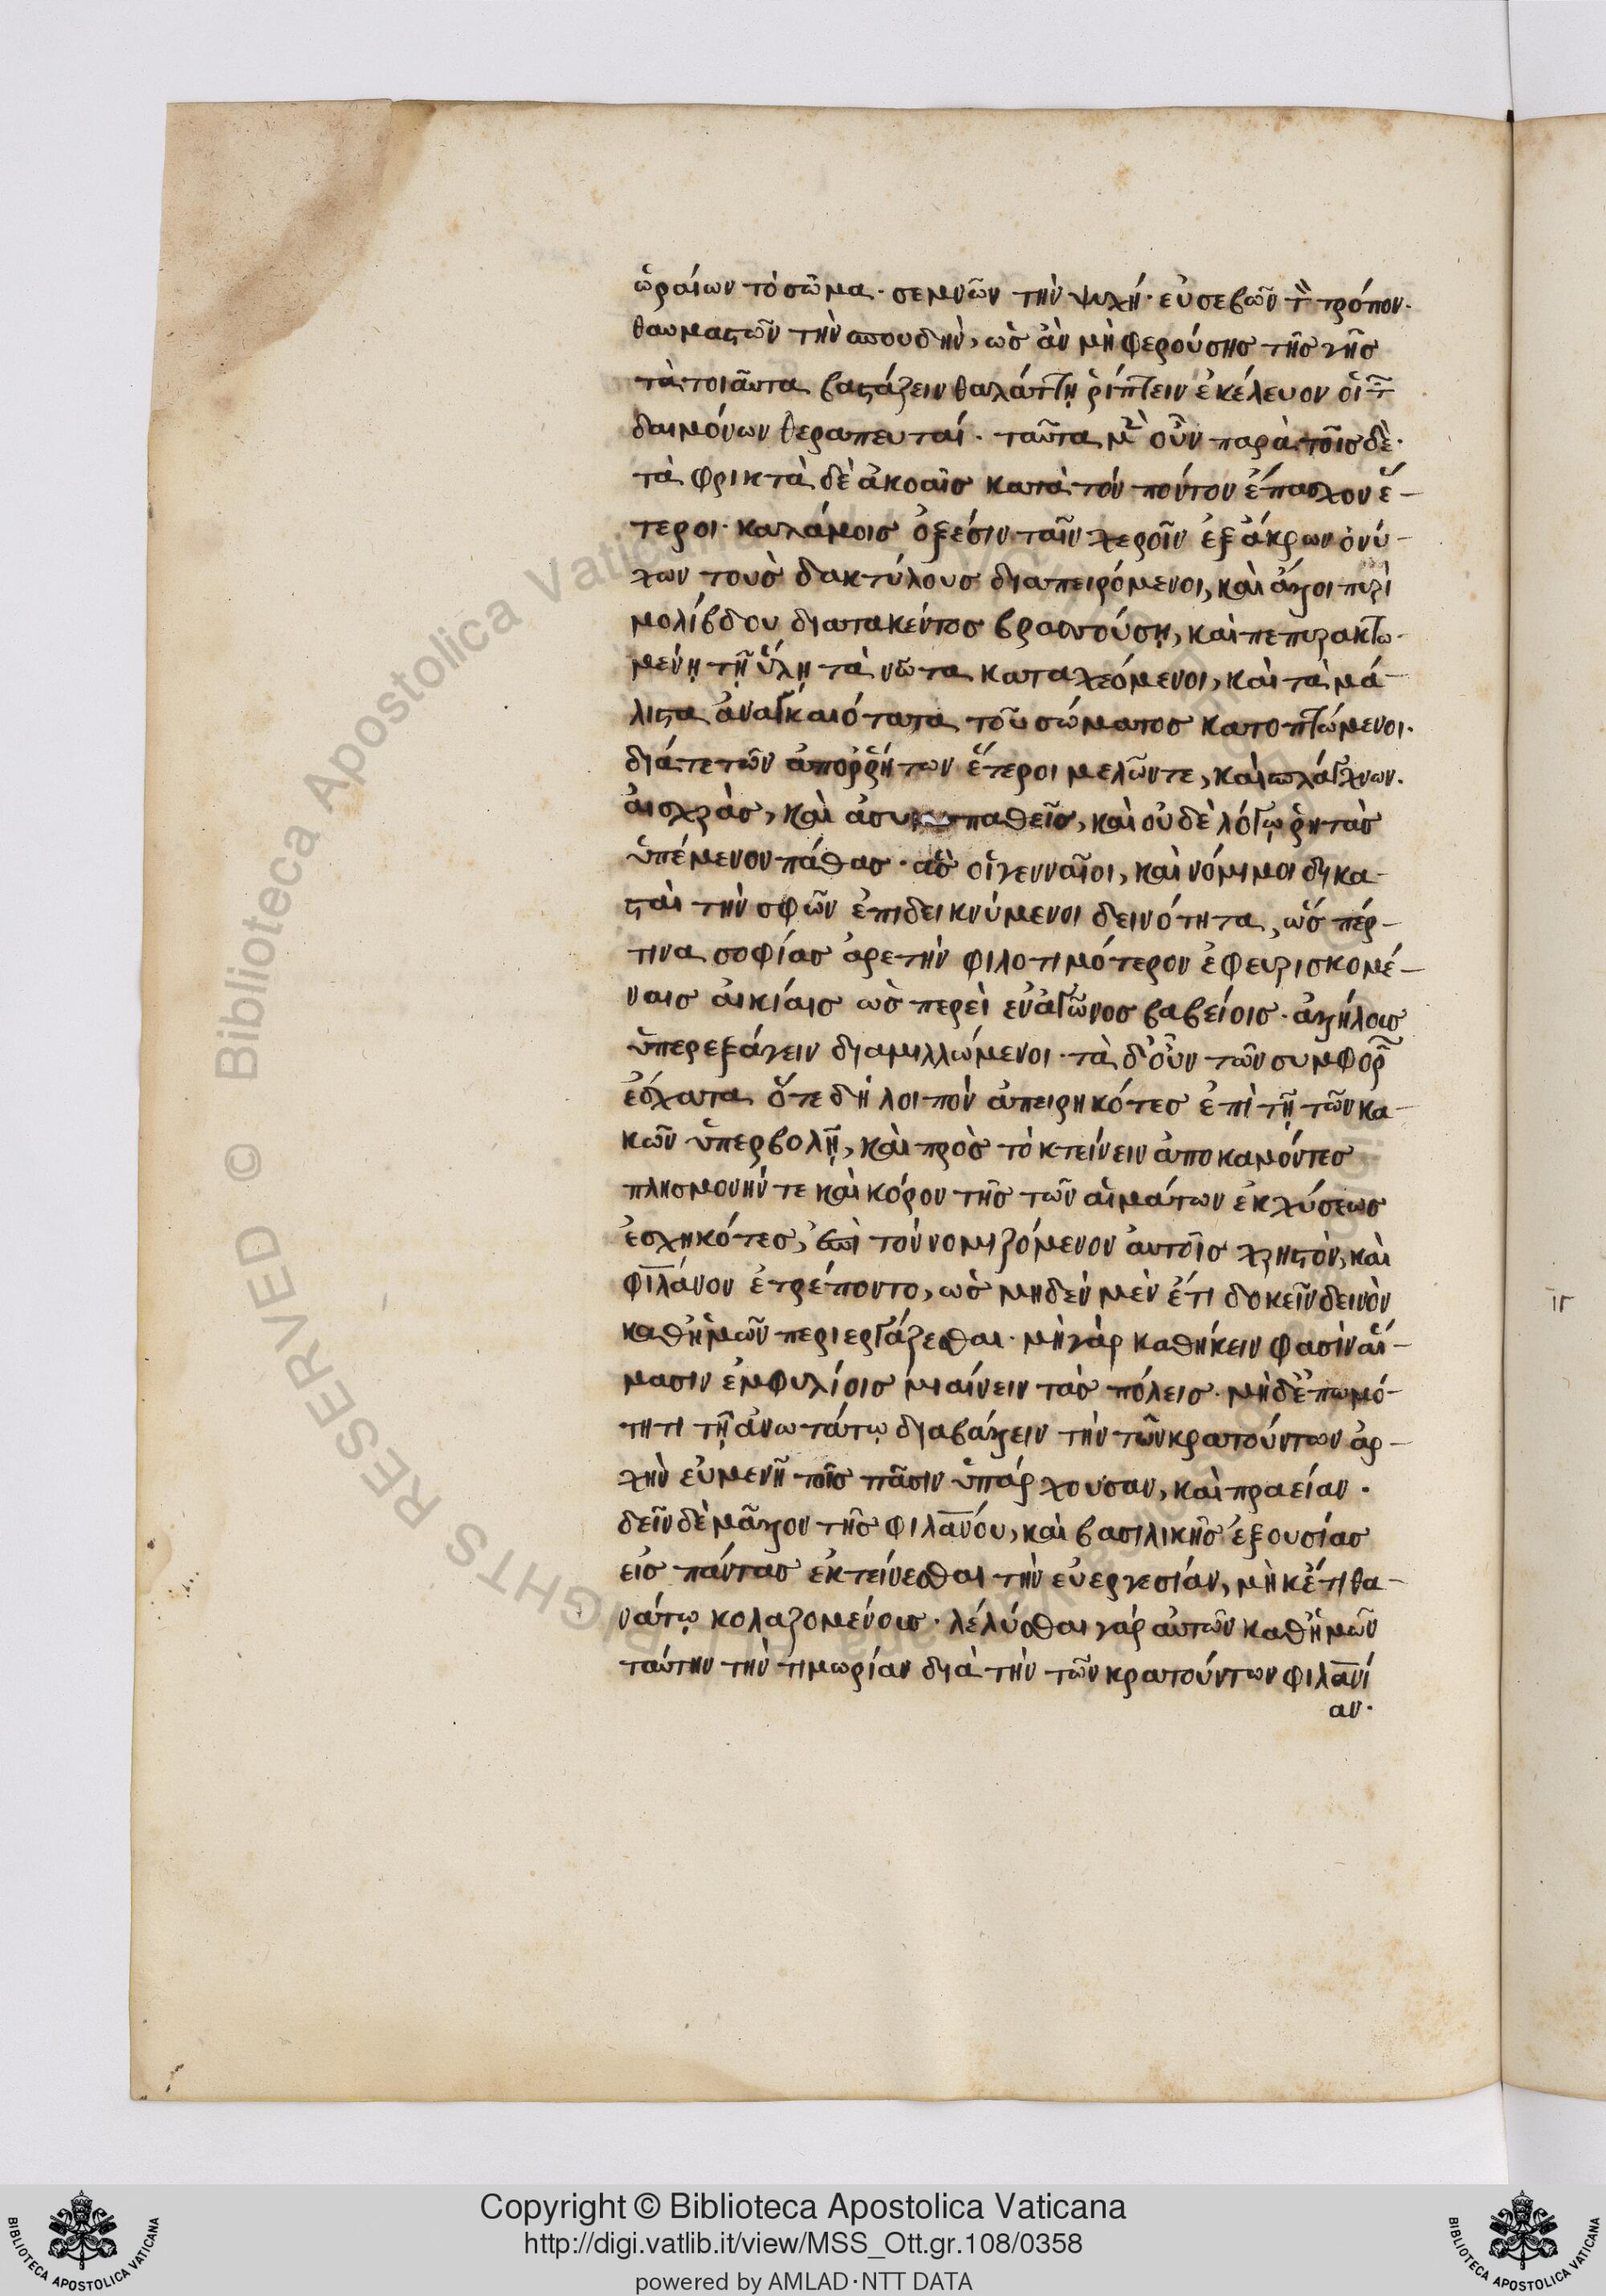 ὡραίων τὸ σῶμα· σεμνῶν τὴν ψυχήν· εὐσεβῶν τὸν τρόπον·
θαυμαστῶν τὴν σπουδήν, ὡς ἀν μὴ φερούσης τῆς γῆς
τὰ τοιαῦτα βαστάζειν θαλάττη ῥίπτειν ἐκέλευον οἱ τῶν
δαιμόνων θεραπευταί· ταῦτα μὲν οὖν παρὰ τοῖσδε·
τὰ φρικτὰ δὲ ἀκοαῖς κατὰ τὸν πόντον ἔπασχον ἕ-
τεροι· καλάμοις ὀξέσιν ταῖν χεροῖν ἐξ ἄκρων ὀνύ-
χων τοὺς δακτύλους διαπειρόμενοι, καὶ ἄλλοι πυρὶ
μολίβδου διατακέντος βρασσούσῃ, καὶ πεπυρακτω-
μένῃ τῇ ὕλῃ τὰ νῶτα καταχεόμενοι, καὶ τὰ μά-
λιστα ἀναγκαιότατα τοῦ σώματος κατοπτώμενοι·
διά τε τῶν ἀπορρήτων ἕτεροι μελῶν τε, καὶ σπλάγχνων·
αἰσχρὰς, καὶ ἀσυμπαθεῖς, καὶ οὐδὲ λόγῳ ῥητὰς
ὑπέμενον πάθας· ἃς οἱ γενναῖοι, καὶ νόμιμοι δικα-
σταὶ τὴν σφῶν ἐπιδεικνύμενοι δεινότητα, ὥσπέρ
τινα σοφίας ἀρετὴν φιλοτιμότερον ἐφευρισκομέ-
ναις αἰκίαις ὡσπερεὶ ἐν ἀγῶνος βαβείοις· ἀλλήλους
ὑπερεξάγειν διαμιλλώμενοι· τὰ δ' οὖν τῶν συμφορῶν
ἔσχατα ὅτε δὴ λοιπὸν ἀπειρηκότες ἐπὶ τῇ τῶν κα-
κῶν ὑπερβολῇ, καὶ πρὸς τὸ κτείνειν ἀποκαμόντες
πλησμονήν τε καὶ κόρον τῆς τῶν αἱμάτων ἐκχύσεως
ἐσχηκότες, ἐπὶ τὸ νομιζόμενον αὐτοῖς χρηστὸν, καὶ
φιλάνον ἐτρέποντο, ὡς μηδὲν μὲν ἔτι δοκεῖν δεινὸν
καθ' ἡμῶν περιεργάζεσθαι· μὴ γὰρ καθήκειν φασὶν αἵ-
μασιν ἐμφυλίοις μιαίνειν τὰς πόλεις· μὴ δ' ἐπ' ὠμό-
τητι τῇ ἀνωτάτῳ διαβάλλειν τὴν τῶν κρατούντων ἀρ-
χὴν εὐμενῆ τοῖς πᾶσιν ὑπάρχουσαν, καὶ πραεῖαν·
δεῖν δὲ μᾶλλον τῆς φιλανου, καὶ βασιλικῆς ἐξουσίας
εἰς πάντας ἐκτείνεσθαι τὴν εὐεργεσίαν, μὴ κέτι θα-
νάτῳ κολαζομένους· λέλύσθαι γὰρ αὐτῶν καθ' ἡμῶν
ταύτην τὴν τιμωρίαν διὰ τὴν τῶν κρατούντων φιλανί
αν·
Copyright © Biblioteca Apostolica Vaticana
http://digi.vatlib.it/view/MSS_Ott.gr.108/0358
powered by AMLAD·NTT DATA